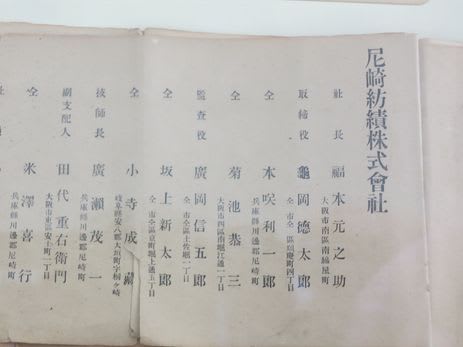 尼崎紡績株式會社
社長 福本元之助
大阪市南區南綿屋町
取締役 龜岡德太郎
仝市仝區順慶町四丁目
仝 木咲利一郎
兵庫縣川邊郡尼崎町
仝 菊池恭三
大阪市四區南堀江通一丁目
監査役 廣岡信五郎
仝市仝區土佐堀一丁目
仝 坂上新太郎
仝市仝區京町堀上通五丁目
仝 小寺成藏
岐阜縣安八郡大垣町字
技師長 廣瀨茂一
兵庫縣川邊郡尼崎町
副支配人 田代重右衞門
大阪市東區安土町一丁目
仝 米澤喜行
兵庫縣川邊郡尼崎町